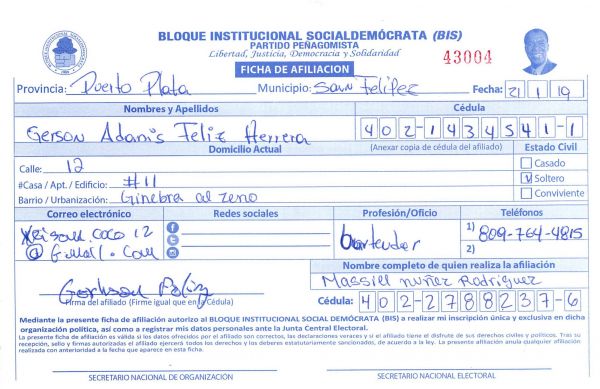 BLOQUE INSTITUCIONAL SOCIALDEMÓCRATA (BIS)
PARTIDO PEÑAGOMISTA
Libertad, Justicia, Democracia y Solidaridad
43004
FICHA DE AFILIACION
Provincia: Puerto Plata Municipio: San Felipez Fecha: 21 1 19
Nombres y Apellidos Cédula
Gerson Adamis Feliz Herrera 402-1434541-1
Domicilio Actual (Anexar copia de cédula del afiliado) Estado Civil
Calle: 12 Casado
#Casa / Apt. / Edificio: #11 Soltero
Barrio / Urbanización: Ginebra al zeno Conviviente
Correo electrónico Redes sociales Profesión/Oficio Teléfonos
coco 12 bartender 1) 809-764-4815
@Gmail.com 2)
Nombre completo de quien realiza la afiliación
Massiel nuñez Rodriguez
Firma del afiliado (Firme igual que en la Cédula) Cédula: 402-2788237-6
Mediante la presente ficha de afiliación autorizo al BLOQUE INSTITUCIONAL SOCIAL DEMÓCRATA (BIS) a realizar mi inscripción única y exclusiva en dicha
organización política, así como a registrar mis datos personales ante la Junta Central Electoral.
La presente ficha de afiliación es válida si los datos ofrecidos por el afiliado son correctos, las declaraciones veraces y si el afiliado tiene el disfrute de sus derechos civiles y políticos. Tras su
recepción, sello y firmas autorizadas el afiliado ejercerá todos los derechos y los deberes estatutariamente sancionados, de acuerdo a la ley. La presente afiliación anula cualquier afiliación
realizada con anterioridad a la fecha que aparece en esta ficha.
SECRETARIO NACIONAL DE ORGANIZACIÓN SECRETARIO NACIONAL ELECTORAL